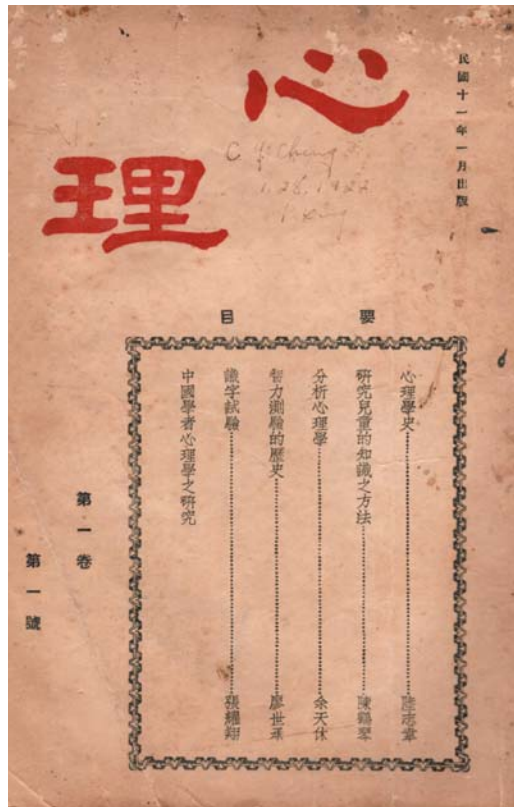 民國十一年一月出版
心
理
C. Y. Chang
1.28.1922
要目
心理學史 陸志韋
研究兒童的知識之方法 陳鶴琴
分析心理學 余天休
智力測驗的歷史 廖世承
識字試驗 張耀翔
中國學者心理學之研究
第一卷
第一號